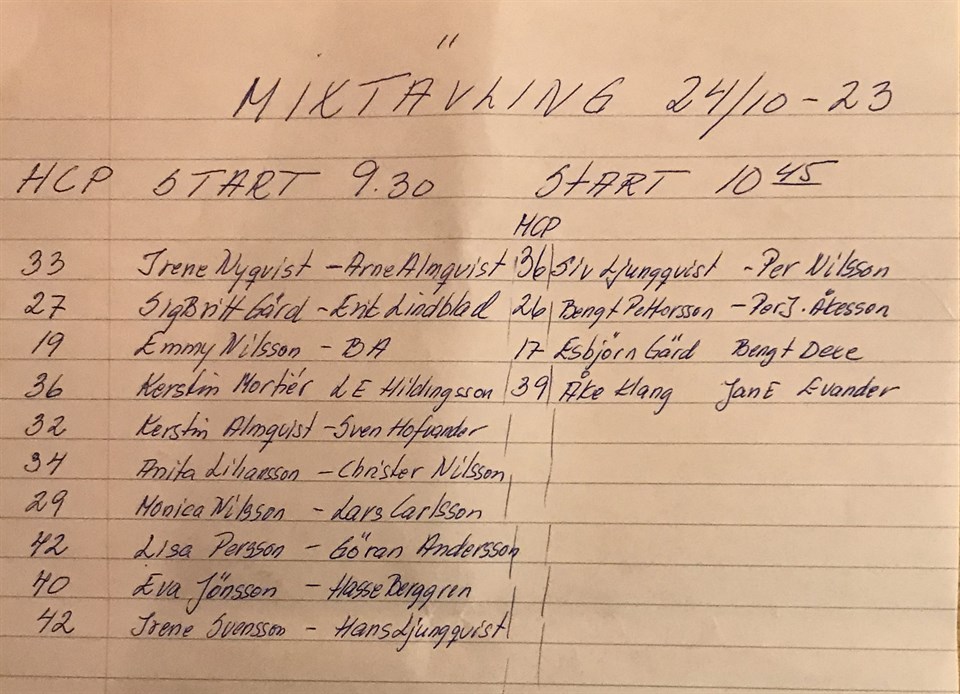 MIXTÄVLING 24/10-23
HCP START 9.30 START 10 45
HCP
33 Irene Nyqvist - Arne Almqvist 36 Siv Ljungqvist - Per Nilsson
27 SigBritt Gärd - Erik Lindblad 26 Bengt Pettersson - Per J. Åkesson
19 Emmy Nilsson - BA 17 Esbjörn Gärd Bengt Deke
36 Kerstin Mortiér LE Hildingsson 39 Åke Klang Jan E Evander
32 Kerstin Almqvist - Sven Hofvander
34 Anita - Christer Nilsson
29 Monica Nilsson - Lars Carlsson
42 Lisa Persson - Göran Andersson
40 Eva Jönsson - Hasse Berggren
42 Irene Svensson - Hans Ljungqvist